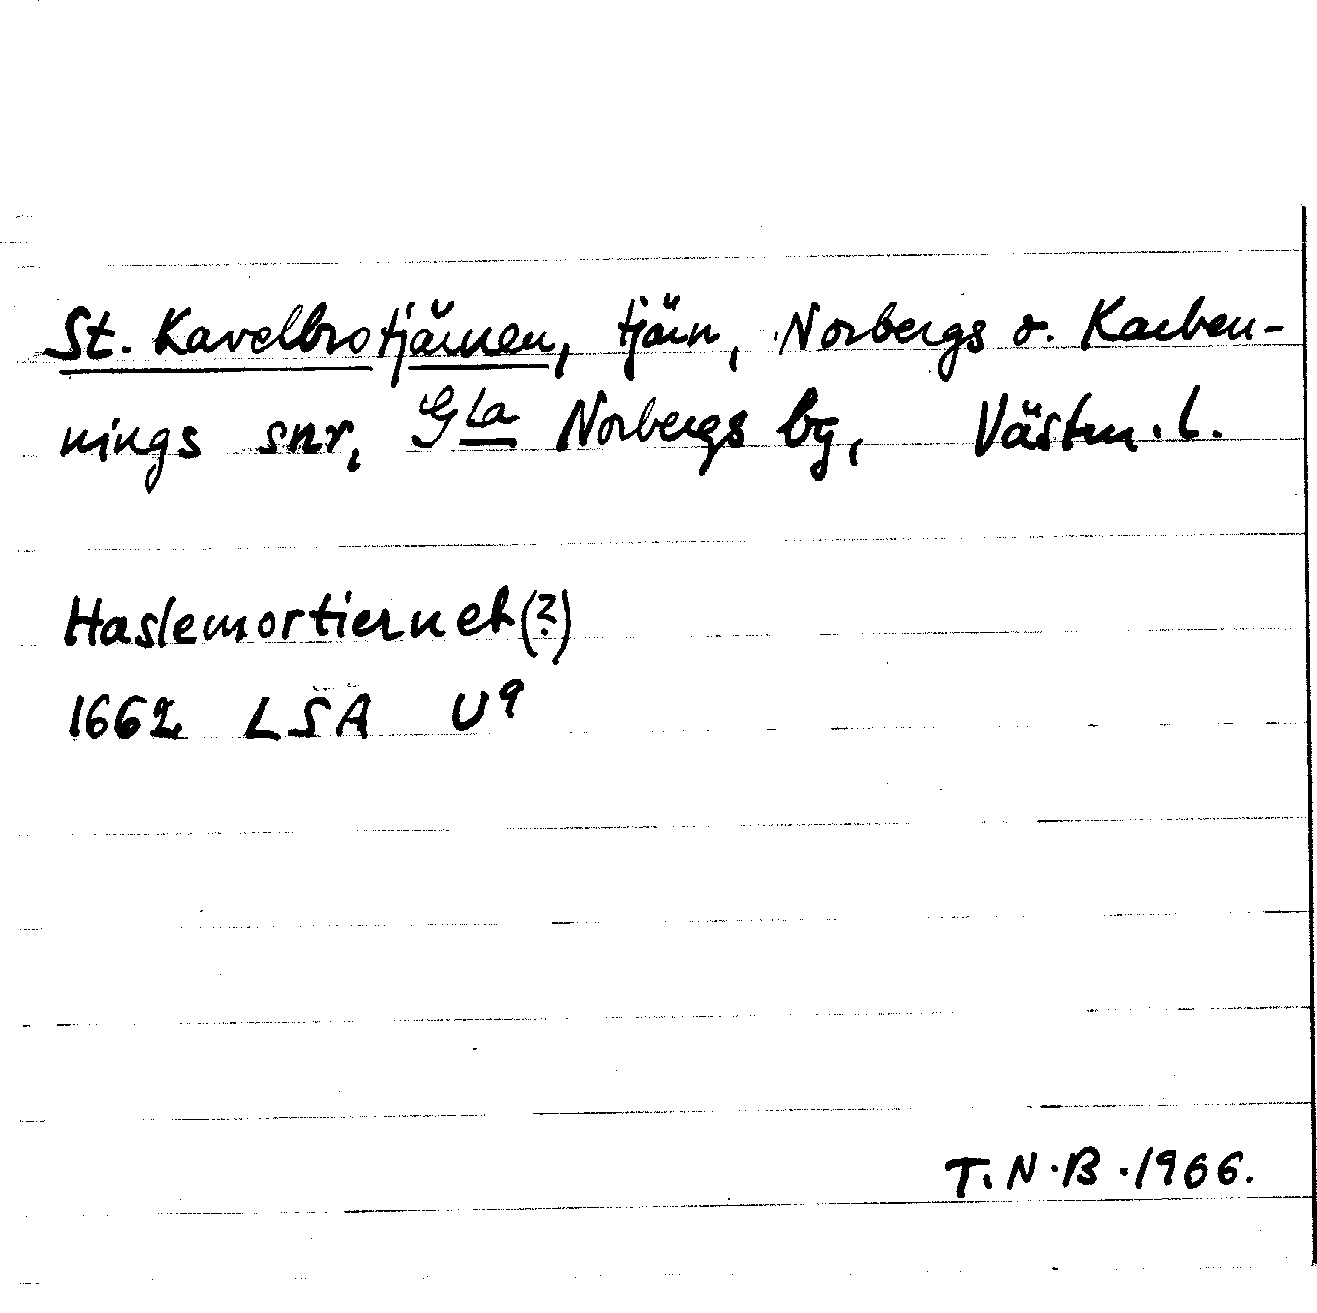 St. Kavelbrotjärnen, tjärn, Norbergs o. Karben-
nings snr, Gla Norbergs bg, Västm. l.
Haslemortiernet (?)
1662 LSA U9
T.N.B. 1966.